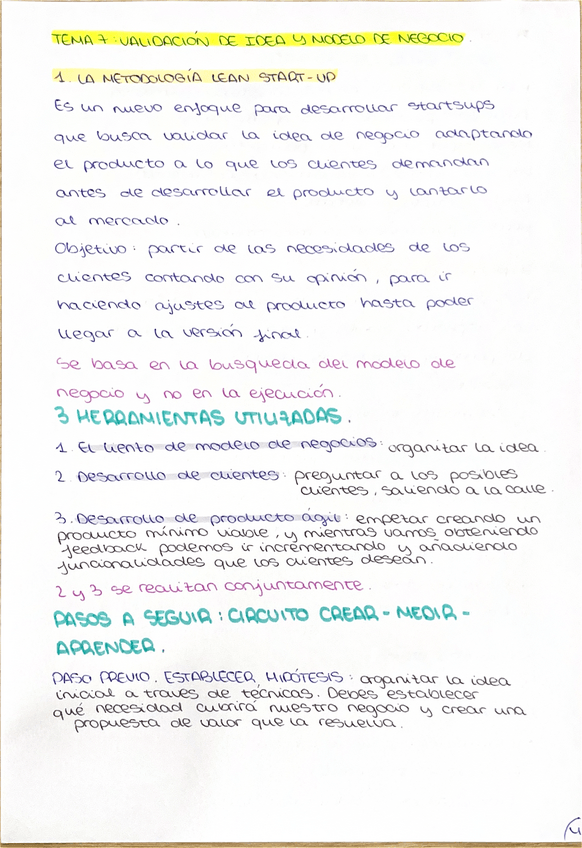 TEMA 7: VALIDACIÓN DE IDEA Y MODELO DE NEGOCIO.
1. LA METODOLOGÍA LEAN START-UP
Es un nuevo enfoque para desarrollar startsups
que busca validar la idea de negocio adaptando
el producto a lo que los clientes demandan
antes de desarrollar el producto y lanzarlo
al mercado.
Objetivo: partir de las necesidades de los
clientes contando con su opinión, para ir
haciendo ajustes al producto hasta poder
llegar a la versión final.
Se basa en la busqueda del modelo de
negocio y no en la ejecución.
3 HERRAMIENTAS UTILIZADAS.
1. El lienzo de modelo de negocios: organizar la idea.
2 Desarrollo de clientes: preguntar a los posibles
clientes, saliendo a la calle.
3. Desarrollo de producto ágil: empezar creando un
producto mínimo viable, y mientras vamos obteniendo
feedback podemos ir incrementando y añadiendo
funcionalidades que los clientes desean.
2 y 3 se realizan conjuntamente.
PASOS A SEGUIR: CIRCUITO CREAR - MEDIR -
APRENDER.
PASO PREVIO. ESTABLECER HIPÓTESIS: organizar la idea
inicial a traves de técnicas. Debes establecer
qué necesidad cubrirá nuestro negocio y crear una
propuesta de valor que la resuelva.